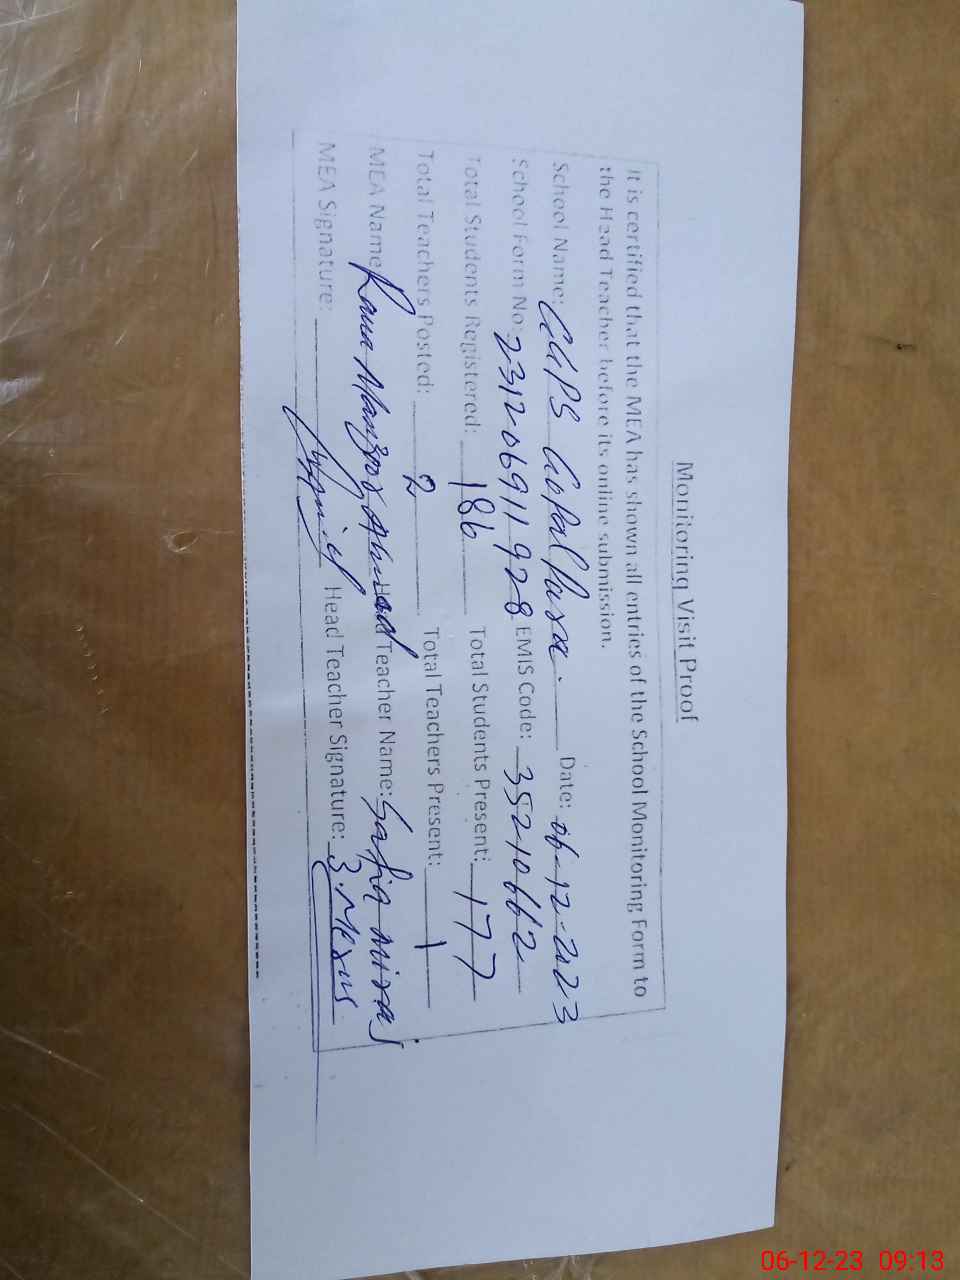 Monitoring Visit Proof
It is certified that the MEA has shown all entries of the School Monitoring Form to
the Head Teacher before its online submission.
School Name: GGPS Gopal Pura. Date: 06-12-2023
School Form No: 231206911928 EMIS Code: 35210662
Total Students Registered: 186 Total Students Present: 177
Total Teachers Posted: 2 Total Teachers Present: 1
MEA Name Rana Manzoor Ahmad Head Teacher Name: Safia Miraj
MEA Signature: Head Teacher Signature:
06-12-23 09:13